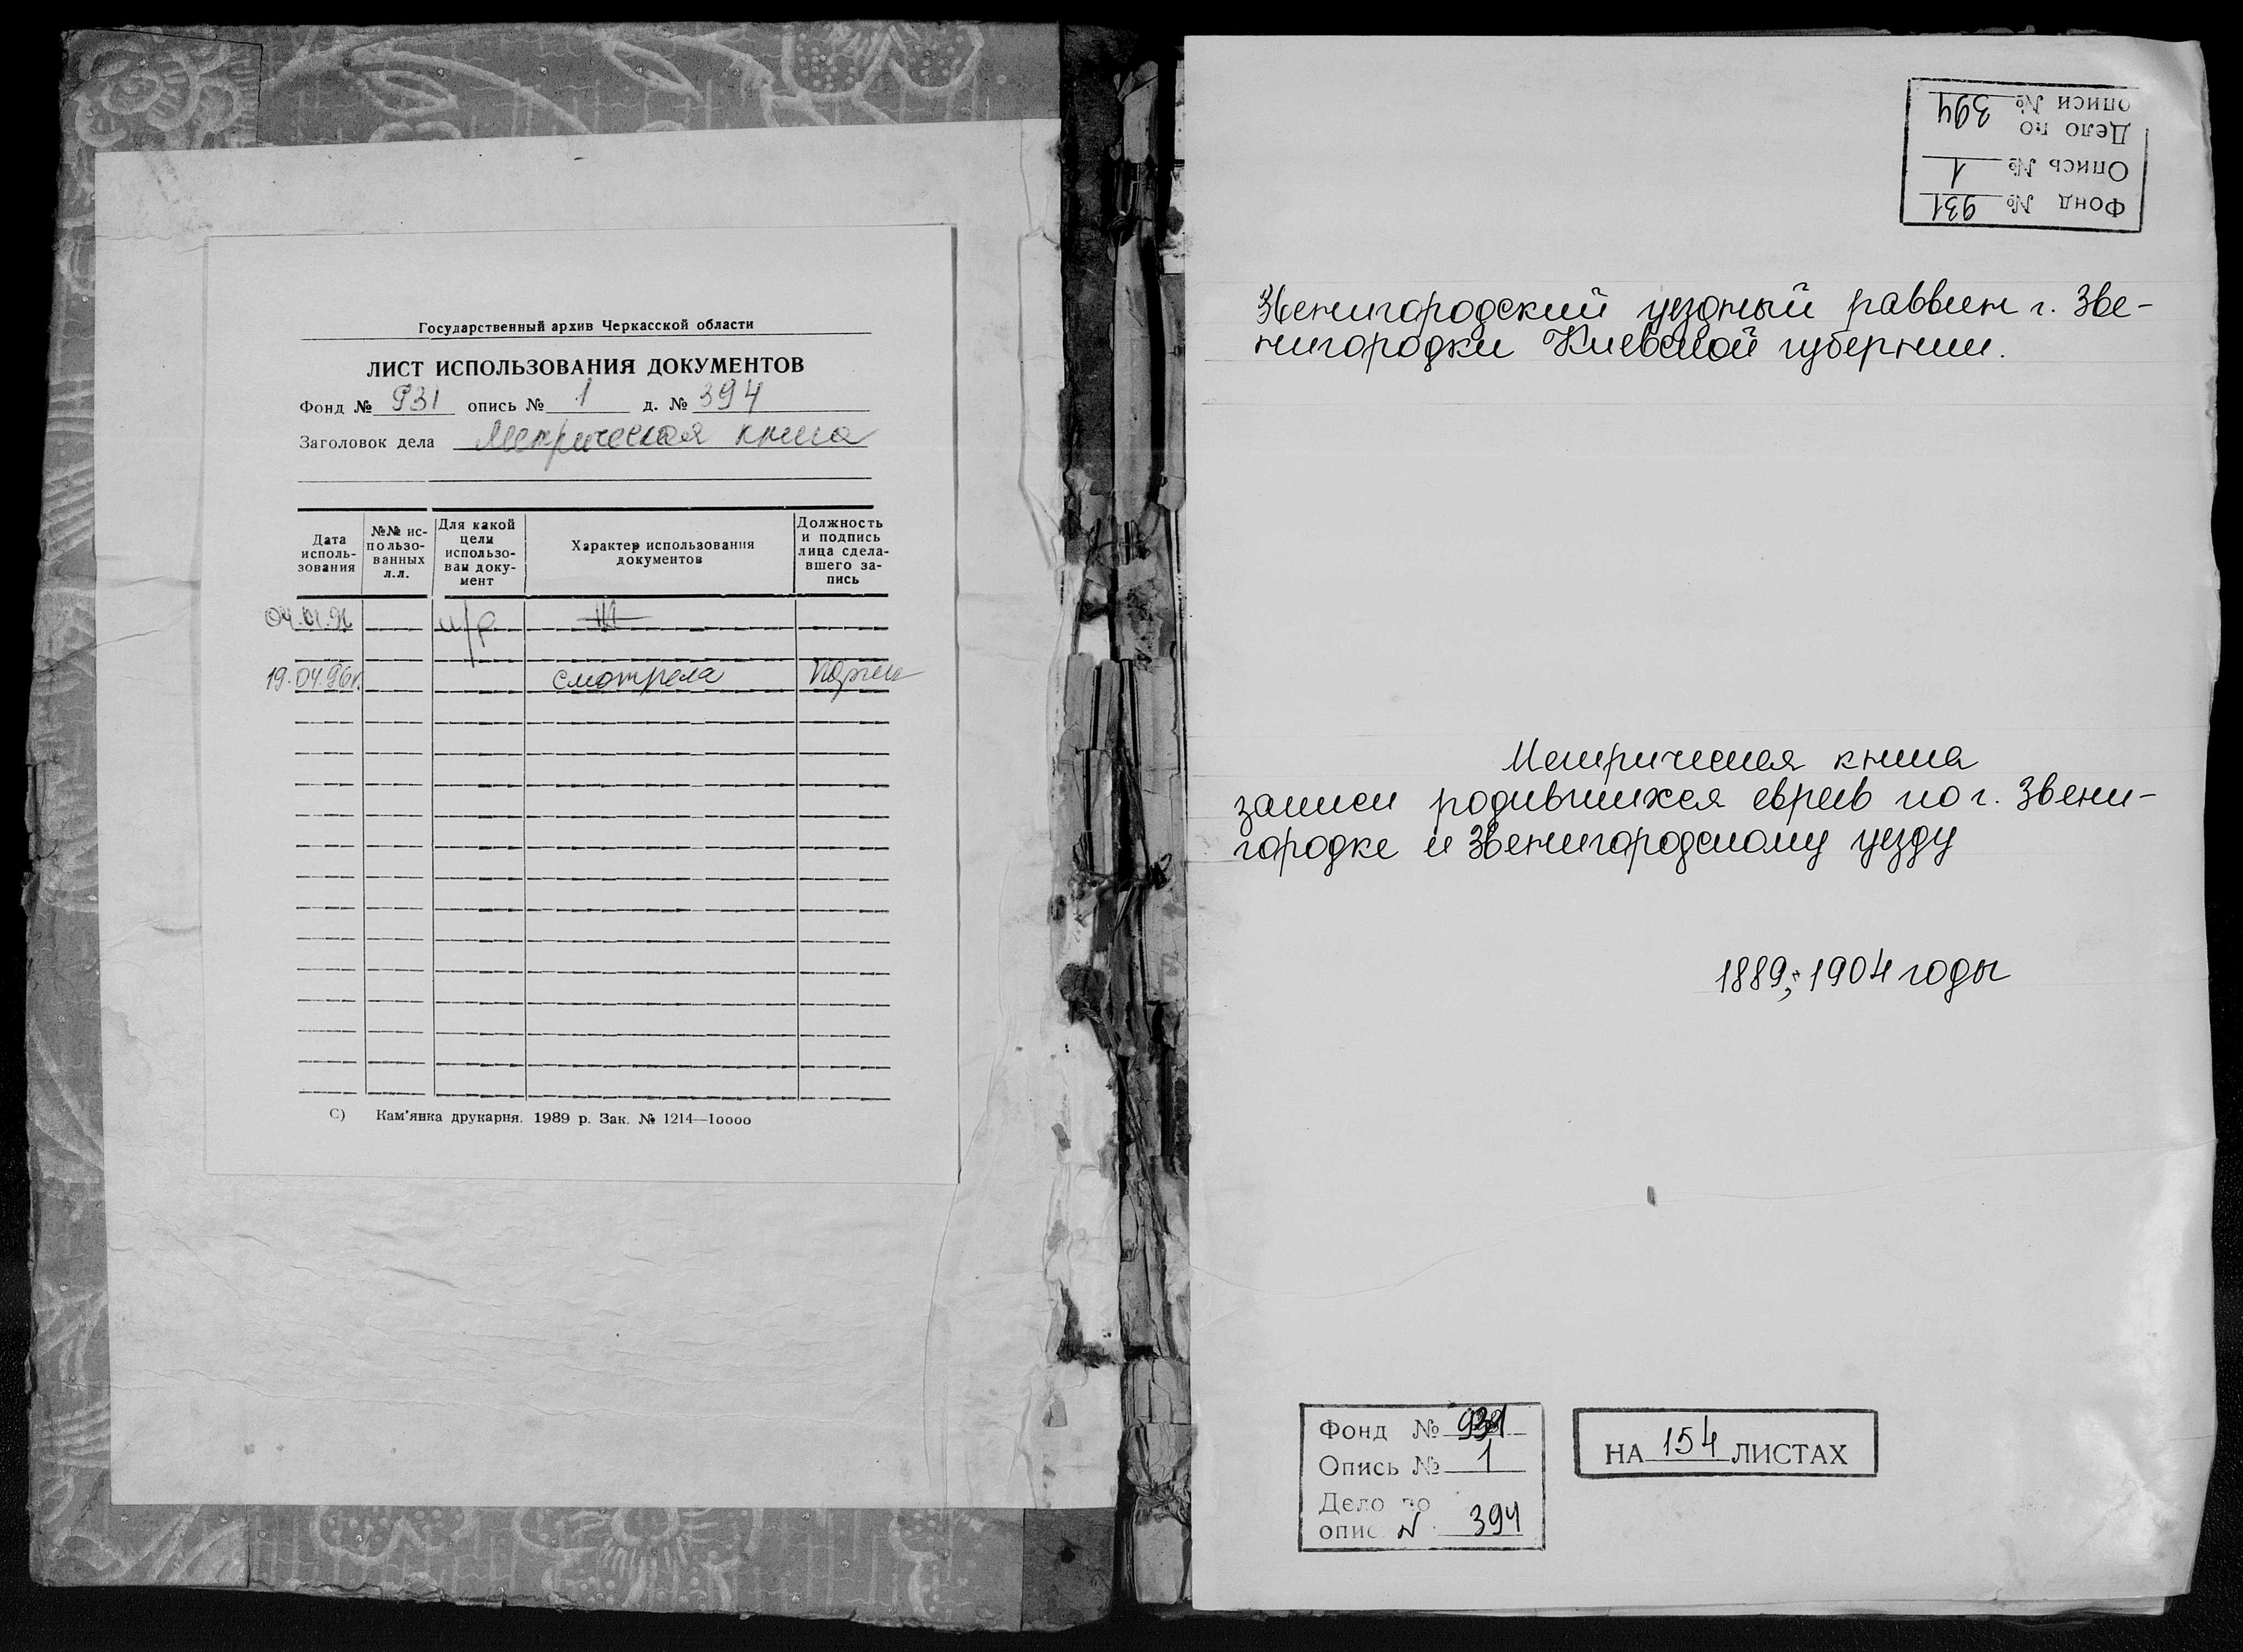 Государственный архив Черкасской области
ЛИСТ ИСПОЛЬЗОВАНИЯ ДОКУМЕНТОВ
Фонд № 931 опись № 1 д. № 394
Заголовок дела Метрическая книга
Дата исполь-зования
№№ ис-пользо-ванных л.л.
Для какой цели использо-ван доку-мент
Характер использования документов
Должность и подпись лица сдела-вшего за-пись
04.01.96 и/р
19.04.96г. смотрела
С) Кам'янка друкарня. 1989 р. Зак. № 1214—10000
Фонд № 931
Опись № 1
Дело по
описи № 394
Звенигородский уездный раввин г. Зве-
нигородки Киевской губернии.
Метрическая книга
записи родившихся евреев по г. Звени-
городке и Звенигородскому уезду
1889; 1904 годы
Фонд № 931
Опись № 1
Дело по
опис N 394
НА 154 ЛИСТАХ